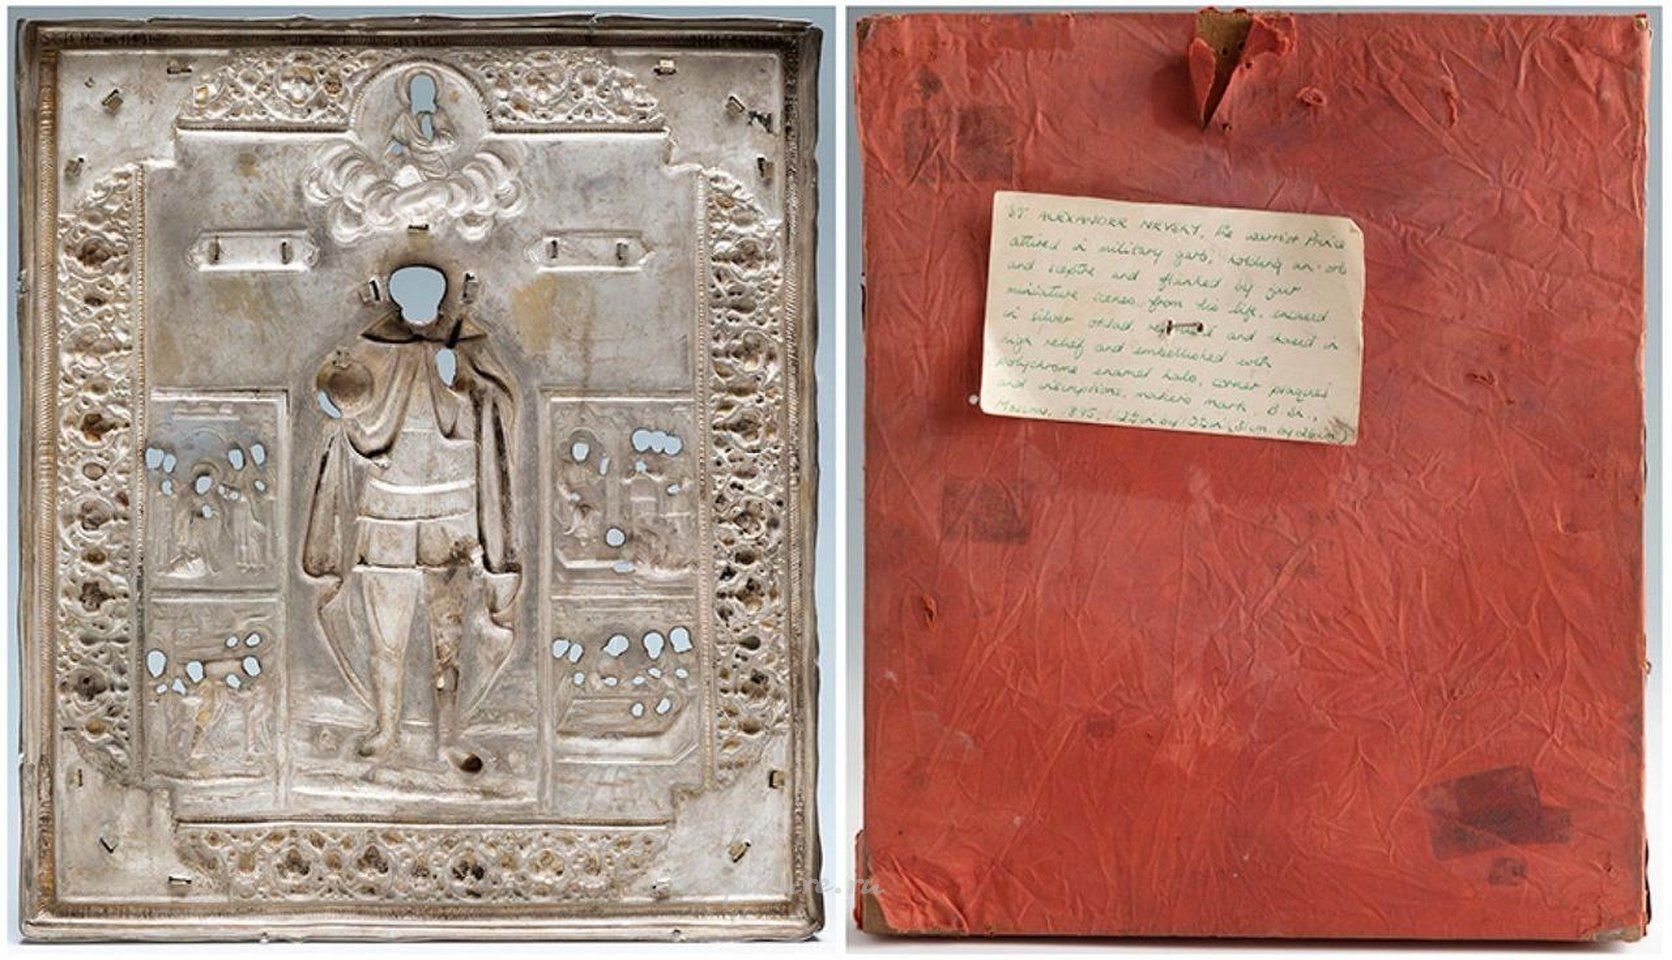 ST. ALEXANDER NEVSKY, the warrior Prince
attired in military garb, holding an orb
and sceptre and flanked by four
miniature scenes from his life, encased
in silver oklad, and chased in
high relief and embellished with
polychrome enamel halo, corner plaques
and inscriptions, makers mark
Moscow, 1895, (31cm. by 26cm.)